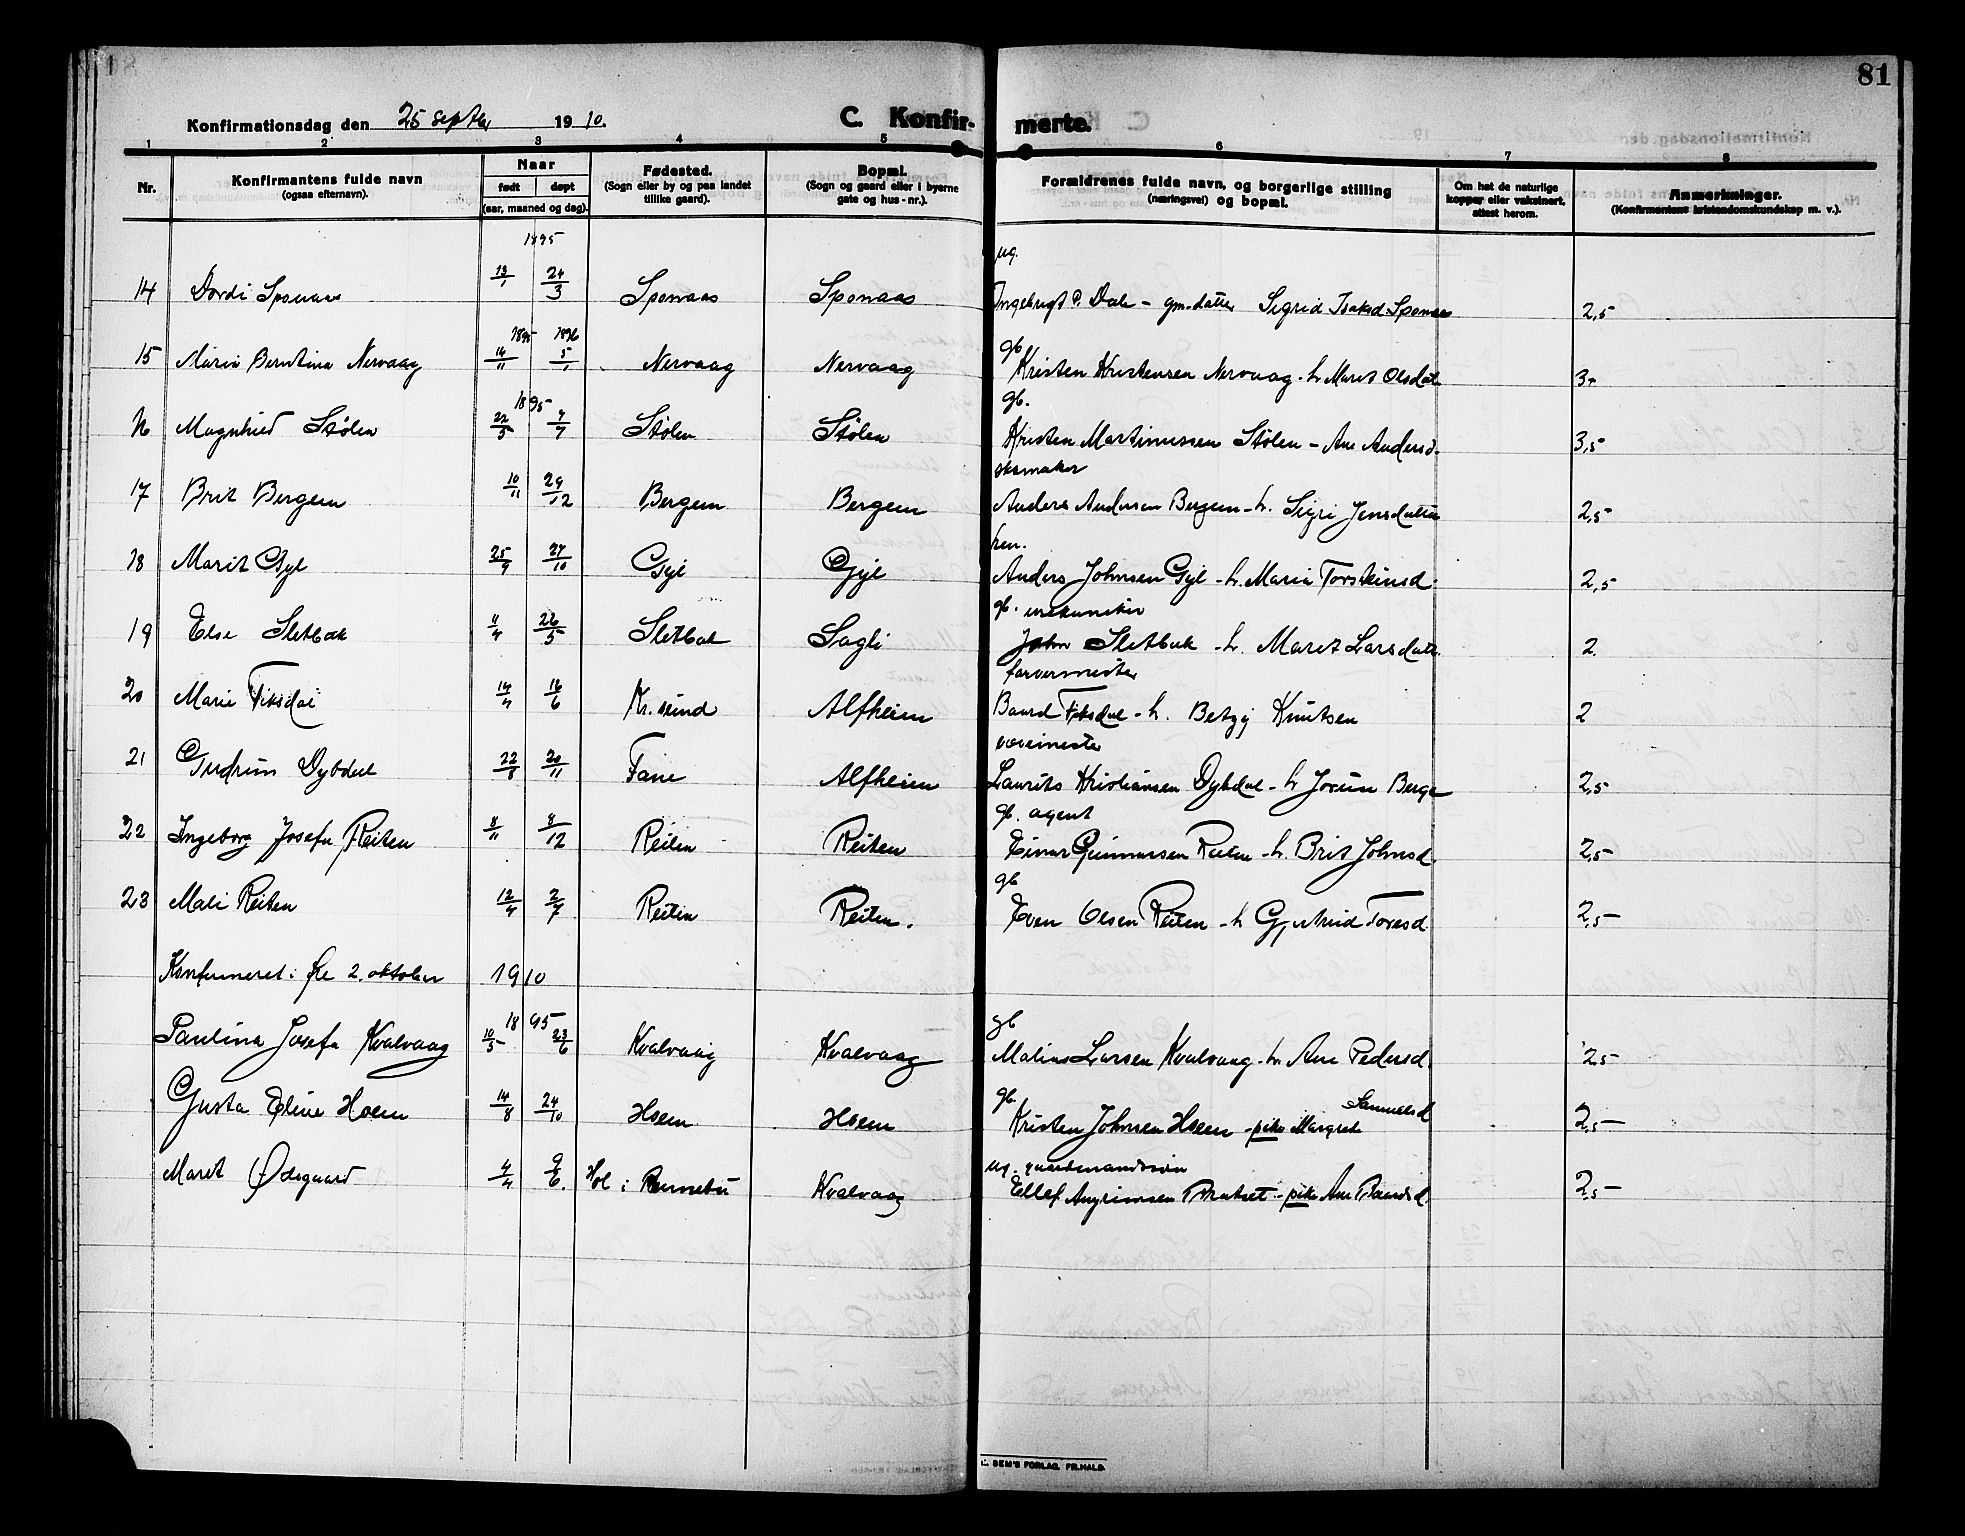 81
Konfirmationsdag den 25 septbr 1910.
C. Konfirmerte.
1 2 3 4 5 6 7 8
Nr.
Konfirmantens fulde navn (ogsaa efternavn).
Naar
født døpt
(aar, maaned og dag).
Fødested. (Sogn eller by og paa landet tillike gaard).
Bopæl. (Sogn og gaard eller i byerne gate og hus-nr.).
Forældrenes fulde navn, og borgerlige stilling (næringsvei) og bopæl.
Om hat de naturlige kopper eller vaksinert, attest herom.
Anmerkninger. (Konfirmantens kristendomskundskap m. v.).
1895 ug.
14 Dordi Sponaas 13/1 24/3 Sponaas Sponaas Ingebrigt P. Dale - gm. datter Sigrid Isaksd Sponaas 2,5
1895 1896 gb
15 Maria Berntina Nervaag 14/11 5/1 Nervaag Nervaag Kristen Kristensen Nervaag - h. Maret Olsdat. 3+
1895 gb.
16 Magnhild Stølen 22/5 7/7 Stølen Stølen Kristen Martinussen Stølen - Ane Andersd. 3,5
skomaker
17 Brit Bergem 10/11 29/12 Bergem Bergem Anders Andersen Bergem - h. Sigri Jensdatter 2,5
18 Marit Gyl 25/9 27/10 Gyl Gyl Anders Johnsen Gyl - h. Maria Torsteinsd. 2,5
gb. urmaker
19 Else Sletbak 11/4 26/5 Sletbak Sagli John Sletbak - h. Maret Larsdatt. 2
farvermester
20 Marie Fiksdal 14/4 16/6 Kr.sund Alfheim Baard Fiksdal - h. Betzy Knutsen 2
21 Gudrun Dybdal 22/8 20/11 Fane Alfheim Laurits Kristiansen Dybdal - h Jorun Berge 2,5
gb. agent
22 Ingeborg Josefa Reiten 8/11 8/12 Reiten Reiten Einar Gunnarsen Reiten - h. Brit Johnsd. 2,5
gb
23 Mali Reiten 12/4 2/7 Reiten Reiten. Even Olsen Reiten - h Gjertrud Toresd. 2,5
Konfirmeret i Øre 2. oktober 1910
1895 gb
Paulina Josefa Kvalvaag 10/5 23/6 Kvalvaag Kvalvaag Malius Larsen Kvalvaag - h. Ane Pedersd. 2,5
gb.
Gusta Eline Hoem 14/8 24/10 Hoem Hoem Kristen Johnsen Hoem - pike Margrete Samuelsd 2,5
ug. gaardmandssøn
Maret Ødegaard 4/4 9/6. Hol i Rennebu Kvalvaag Ellef Arngrimsen Bratset - pike Ane Baardsd. 2,5
L. SEM'S FORLAG. FR.HALD.